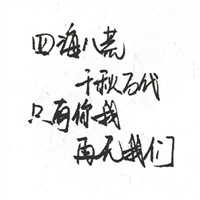 四海八荒
千秋万代
只有你我
再无我们